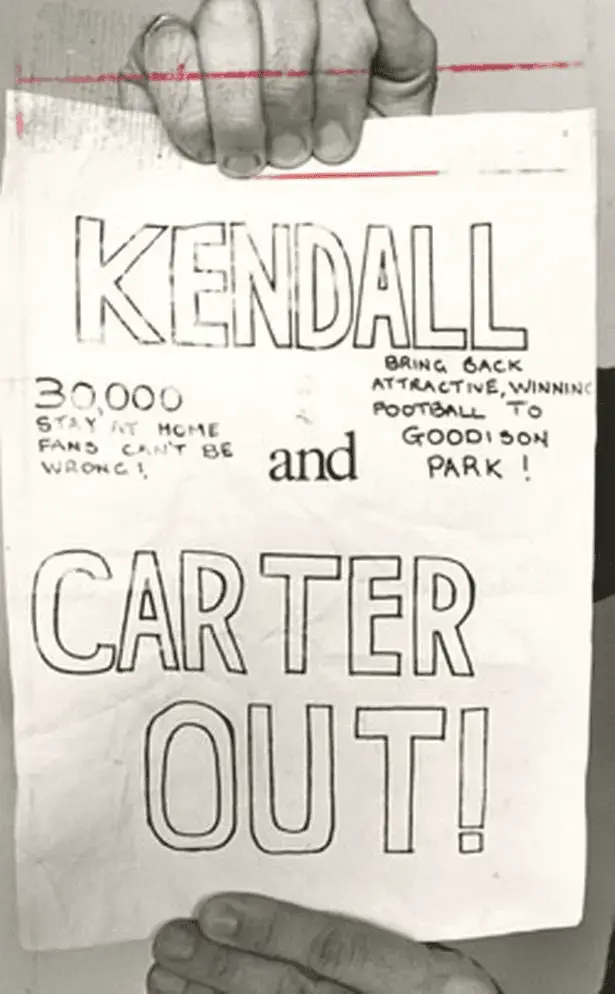 KENDALL
30,000
STAY AT HOME
FANS CAN'T BE
WRONG!
and
BRING BACK
ATTRACTIVE, WINNING
FOOTBALL TO
GOODISON
PARK!
CARTER
OUT!